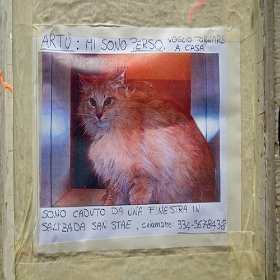 ARTÙ: MI SONO PERSO. VOGLIO TORNARE
A CASA
SONO CADUTO DA UNA FINESTRA IN
SALIZADA SAN STAE, chiamare: 334-9678438